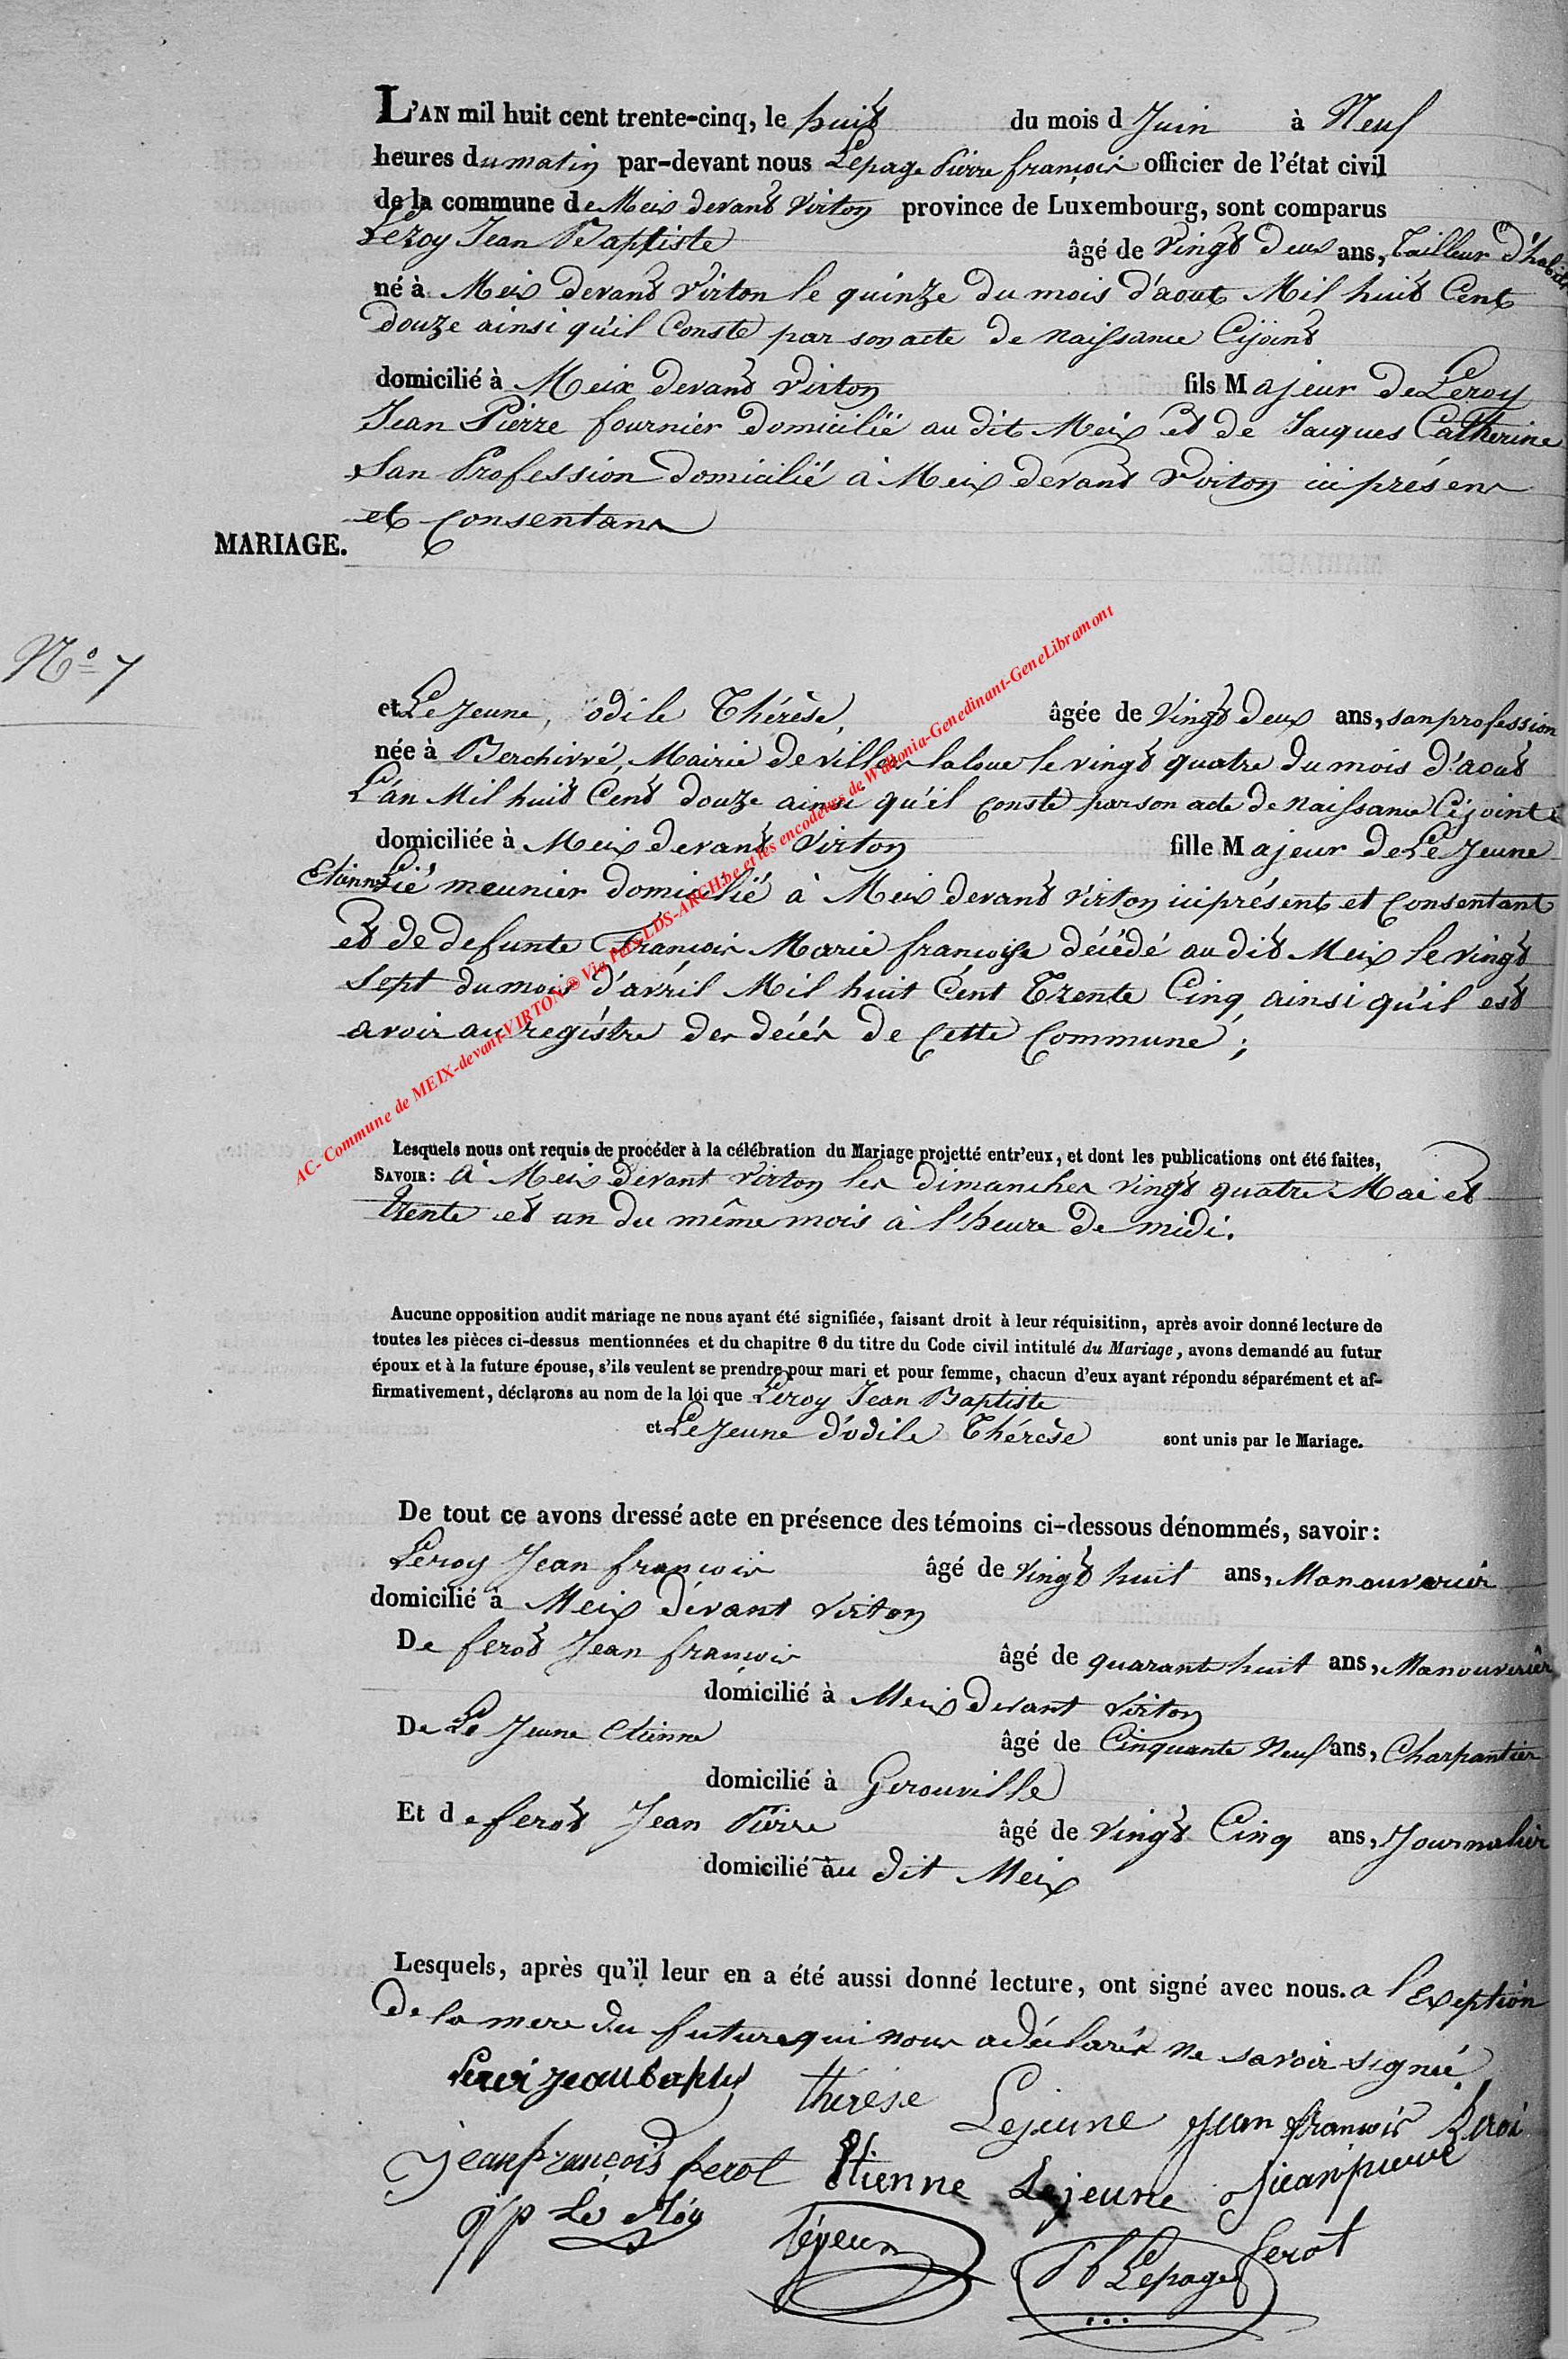 L'AN mil huit cent trente-cinq, le huit du mois d Juin à Neuf
heures du matin par-devant nous Lepage Pierre françois officier de l'état civil
de la commune de Meix devant Virton province de Luxembourg, sont comparus
Leroy Jean Baptiste âgé de vingt deux ans, Tailleur d'habits
né à Meix devant Virton le quinze du mois d'aout Mil huit Cent
douze ainsi qu'il Conste par son acte de naissance Cijoint
domicilié à Meix devant Virton fils Majeur de Leroy
Jean Pierre fournier domicilié au dit Meix et de Jacques Catherine
San Profession domicilié à Meix devant Virton ici présens
et Consentans
MARIAGE.
N° 7
et Le Jeune, odile Thérèse, âgée de Vingt deux ans, san profession
née à Berchivé, Mairie de Viller laloue le vingt quatre du mois d'aout
L'an Mil huit Cent douze ainsi qu'il conste par son acte de naissance Cijointe
domiciliée à Meix devant Virton fille Majeur de Le Jeune
Etienne meunier domicilié à Meix devant Virton ici présent et Consentant
et de defunte François Marie françoise décédé au dit Meix le vingt
Sept du mois d'avril Mil huit Cent Trente Cinq ainsi qu'il est
avoir au registre des décés de Cette Commune ;
Lesquels nous ont requis de procéder à la célébration du Mariage projetté entr'eux, et dont les publications ont été faites,
SAVOIR : A Meix devant Virton les dimanches vingt quatre Mai et
trente et un du même mois à l'heure de midi.
Aucune opposition audit mariage ne nous ayant été signifiée, faisant droit à leur réquisition, après avoir donné lecture de
toutes les pièces ci-dessus mentionnées et du chapitre 6 du titre du Code civil intitulé du Mariage, avons demandé au futur
époux et à la future épouse, s'ils veulent se prendre pour mari et pour femme, chacun d'eux ayant répondu séparément et af-
firmativement, déclarons au nom de la loi que Leroy Jean Baptiste
et Le Jeune d'odile Thérèse sont unis par le Mariage.
De tout ce avons dressé acte en présence des témoins ci-dessous dénommés, savoir :
Leroy Jean françois âgé de vingt huit ans, Manouvrier
domicilié à Meix devant Virton
De ferot Jean françois âgé de quarante huit ans, Manouvrier
domicilié à Meix devant Virton
De Le Jeune Etienne âgé de Cinquante Neuf ans, Charpantier
domicilié à Gerouville
Et de ferot Jean Pierre âgé de Vingt Cinq ans, Journalier
domicilié au dit Meix
Lesquels, après qu'il leur en a été aussi donné lecture, ont signé avec nous. a l'Exeption
De la mere du future qui nous a déclarée ne savoir signée
Leroi jean baptis thérese Lejeune jean françois Leroi
jean françois ferot Etienne Lejeune jean pierre
jp Le Roy Lejeun Pf Lepage ferot
AC- Commune de MEIX-devant-VIRTON @ Via Fam-LDS-ARCH.be et les encodeurs de Wallonia-Genedinant-GeneLibramont